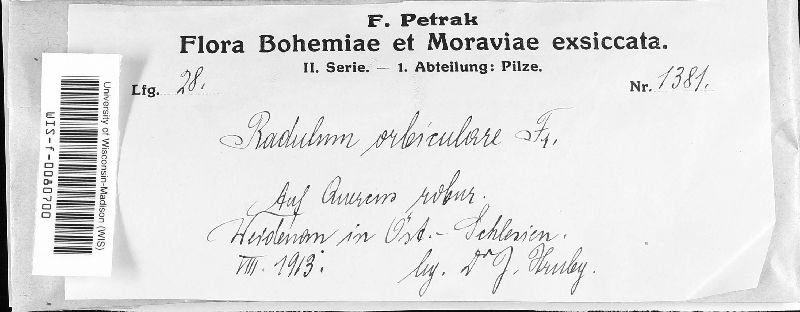 F. Petrak
Flora Bohemiae et Moraviae exsiccata.
II. Serie. — 1. Abteilung: Pilze.
Lfg. 28. Nr. 1381.
Radulum orbiculare Fr.
Auf Quercus robur.
Weidenau in Öst.- Schlesien.
VIII. 1913. leg. Dr J. Hruby.
University of Wisconsin-Madison (WIS)
WIS-f-0080700